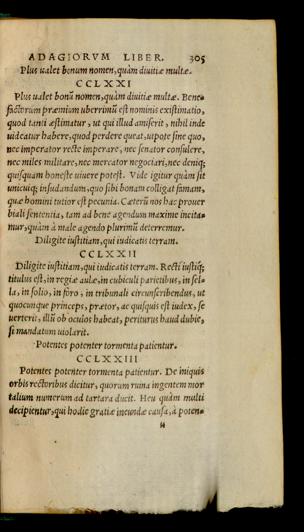 ADAGIORVM LIBER. 305
Plus ualet bonum nomen, quàm diuitiæ multæ.
CCLXXI
Plus ualet bonũ nomen, quàm diuitiæ multæ. Bene-
factorum præmium uberrimũ est nominis existimatio,
quod tanti æstimatur, ut qui illud amiserit, nihil inde
uideatur habere, quod perdere queat, utpote sine quo,
nec imperator recte imperare, nec senator consulere,
nec miles militare, nec mercator negociari, nec deniq;
quisquam honeste uiuere potest. Vide igitur quàm sit
unicuiq; insudandum, quo sibi bonam colligat famam,
quæ homini tutior est pecunia. Cæterũ nos hac prouer
biali sententia, tam ad bene agendum maxime incita-
mur, quàm à male agendo plurimũ deterremur.
Diligite iustitiam, qui iudicatis terram.
CCLXXII
Diligite iustitiam, qui iudicatis terram. Recti iustiq;
titulus est, in regiæ aulæ, in cubiculi parietibus, in sel-
la, in solio, in foro, in tribunali circunscribendus, ut
quocunque princeps, prætor, ac quisquis est iudex, se
uerterit, illũ ob oculos habeat, periturus haud dubie,
si mandatum uiolarit.
Potentes potenter tormenta patientur.
CCLXXIII
Potentes potenter tormenta patientur. De iniquis
orbis rectoribus dicitur, quorum ruina ingentem mor
talium numerum ad tartara ducit. Heu quàm multi
decipientur, qui hodie gratiæ ineundæ causa, à poten-